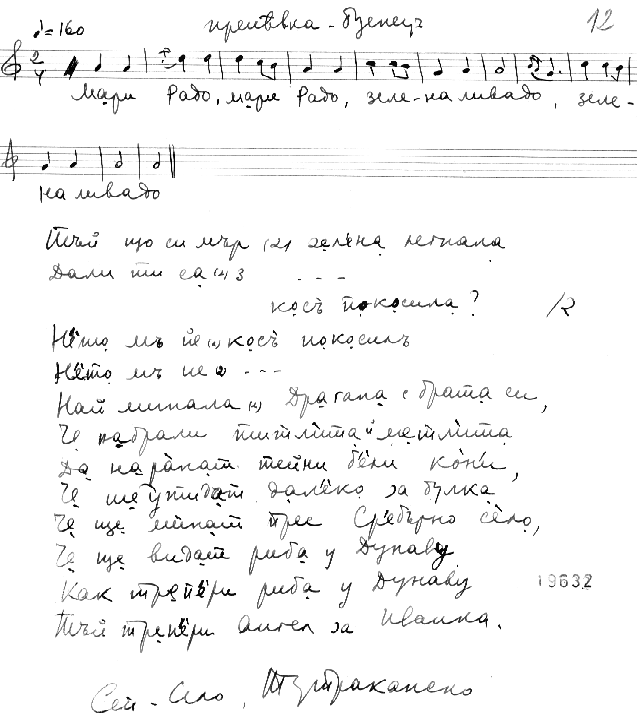 ♩=160 припевка - Бзенец 12
2/4
Мари Радо, мари Радо, зеле-на ливадо, зеле-
на ливадо
Тъй що си мър (2) зелена легнала
Дали ти са (2) з ---
косъ покосила?
Нето мъ не (2) косъ покосилъ
Нето мъ не 2 ---
Най минала (2) Драгана с брата си,
Че набрали питлита и метлита
Да наранат тейни бели кони,
Че ще утидат далеко за булка
Че ще минат през Сребърно село,
Че ще видат риба у Дунаву
Как трепери риба у Дунаву
Тъй трепери Ангел за Иванка.
19632
Сей - Село, Тутраканско